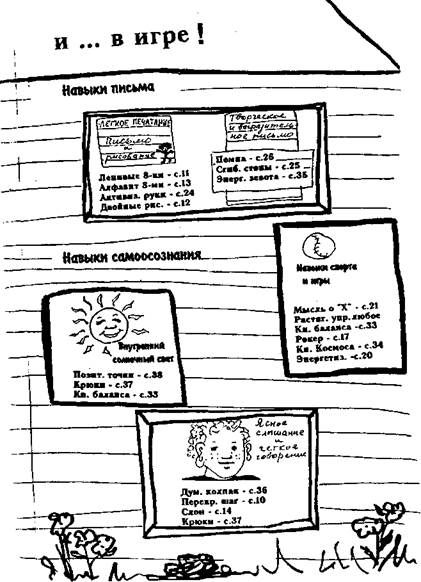 и ... в игре!
Навыки письма
ЛЕГКОЕ ПЕЧАТАНИЕ
Письмо
и
рисование
Ленивые 8-ки - с.11
Алфавит 8-ми - с.13
Активиз. руки - с.24
Двойные рис. - с.12
Творческое
и выразитель
ное письмо
Помпа - с.26
Сгиб. стопы - с.25
Энерг. зевота - с.35
Навыки самоосознания
Внутренний
солнечный свет
Позит. точки - с.38
Крюки - с.37
Кн. баланса - с.33
Навыки спорта
и игры
Мысль о "X" - с.21
Растяг. упр.любое
Кн. баланса -с.33
Рокер - с.17
Кн. Космоса - с.34
Энергетиз. -с.20
Ясное
слышание
и
легкое
говорение
Дум. колпак - с.36
Перекр. шаг - с.10
Слон - с.14
Крюки - с.37